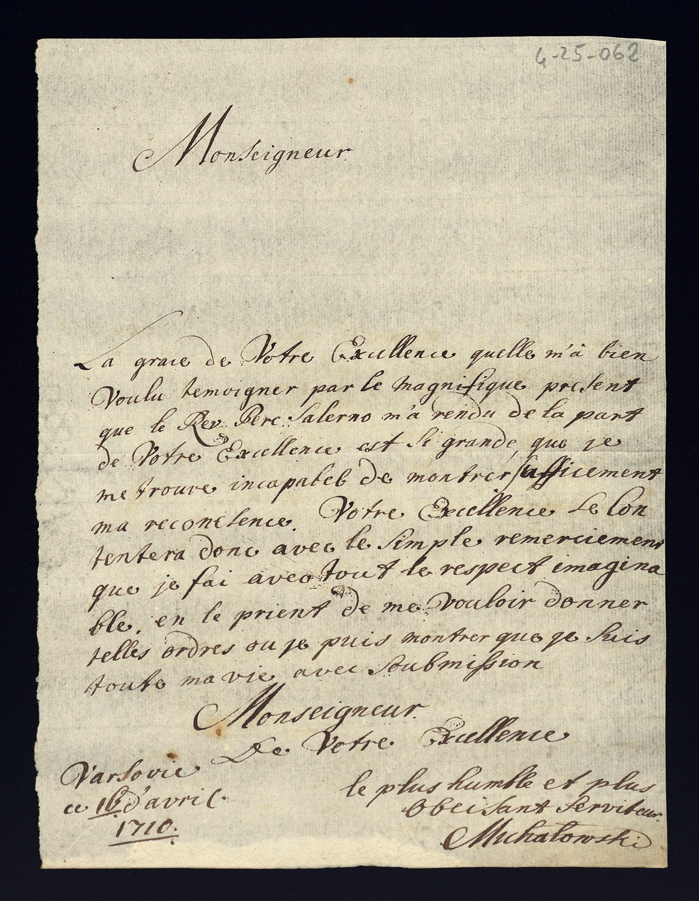 4-25-062
Monseigneur
La grace de Votre Excellence quelle m'à bien
Voulu temoigner par le magnifique present
que le Rev. Pere Salerno m'a rendu de la part
de Votre Excellence est si grande, que je
me trouve incapabel de montrer sufficement
ma reconcience. Votre Excellence se Con
tentera donc avec le simple remerciement
que je fai avec tout le respect imagina
ble, en le prient de me vouloir donner
telles ordres ou je puis montrer que je suis
toute ma vie avec soubmission
Monseigneur
De Votre Excellence
Varsovie
ce d'avril
1710.
le plus humble et plus
Obeisant Serviteur
Michalowski